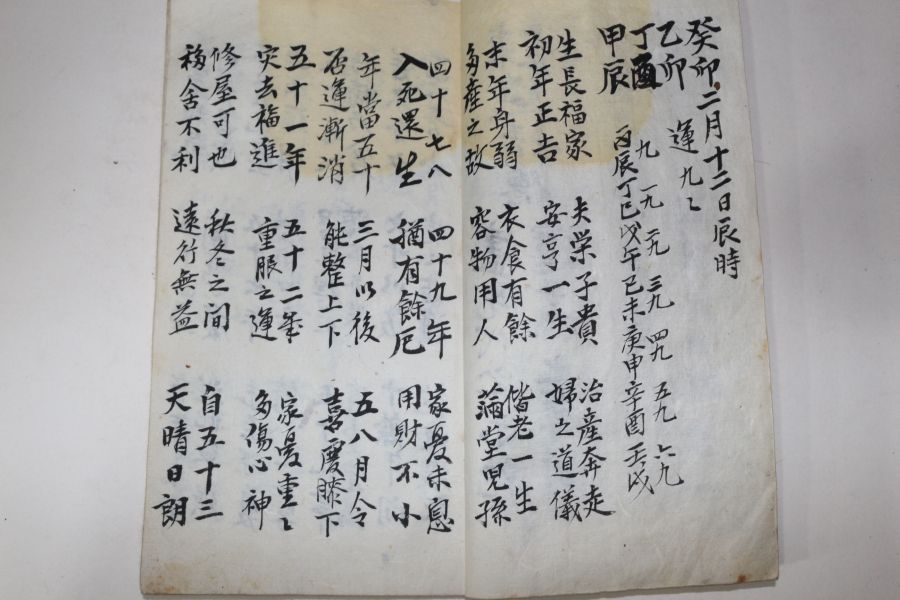 癸卯 二月十二日辰時
乙卯 運九〻
丁酉 九 一九 二九 三九 四九 五九 六九
甲辰 丙辰丁巳戊午己未庚申辛酉壬戌
生長福家 夫荣子貴 治産奔走
初年正吉 安享一生 婦之道儀
末年身弱 衣食有餘 偕老一生
多産之故 容物用人 滿堂児孫
四十七八 四十九年 家憂未息
入死還生 猶有餘厄 用財不小
年當五十 三月以後 五八月令
否運漸消 能整上下 喜慶膝下
五十一年 五十二年 家憂重〻
灾去福進 重服之運 多傷心神
修屋可也 秋冬之間 自五十三
移舍不利 遠行無益 天晴日朗